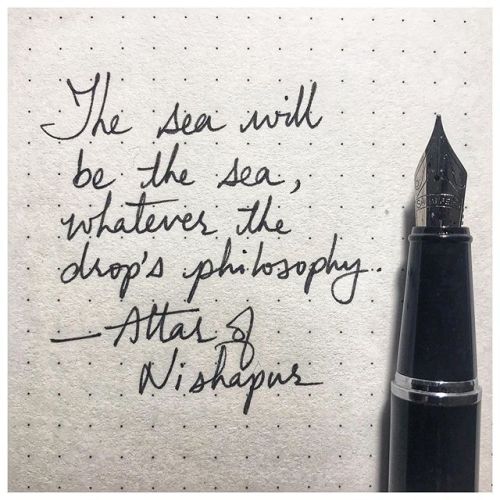 The sea will
be the sea,
whatever the
drop's philosophy.
— Attar of
Nishapur